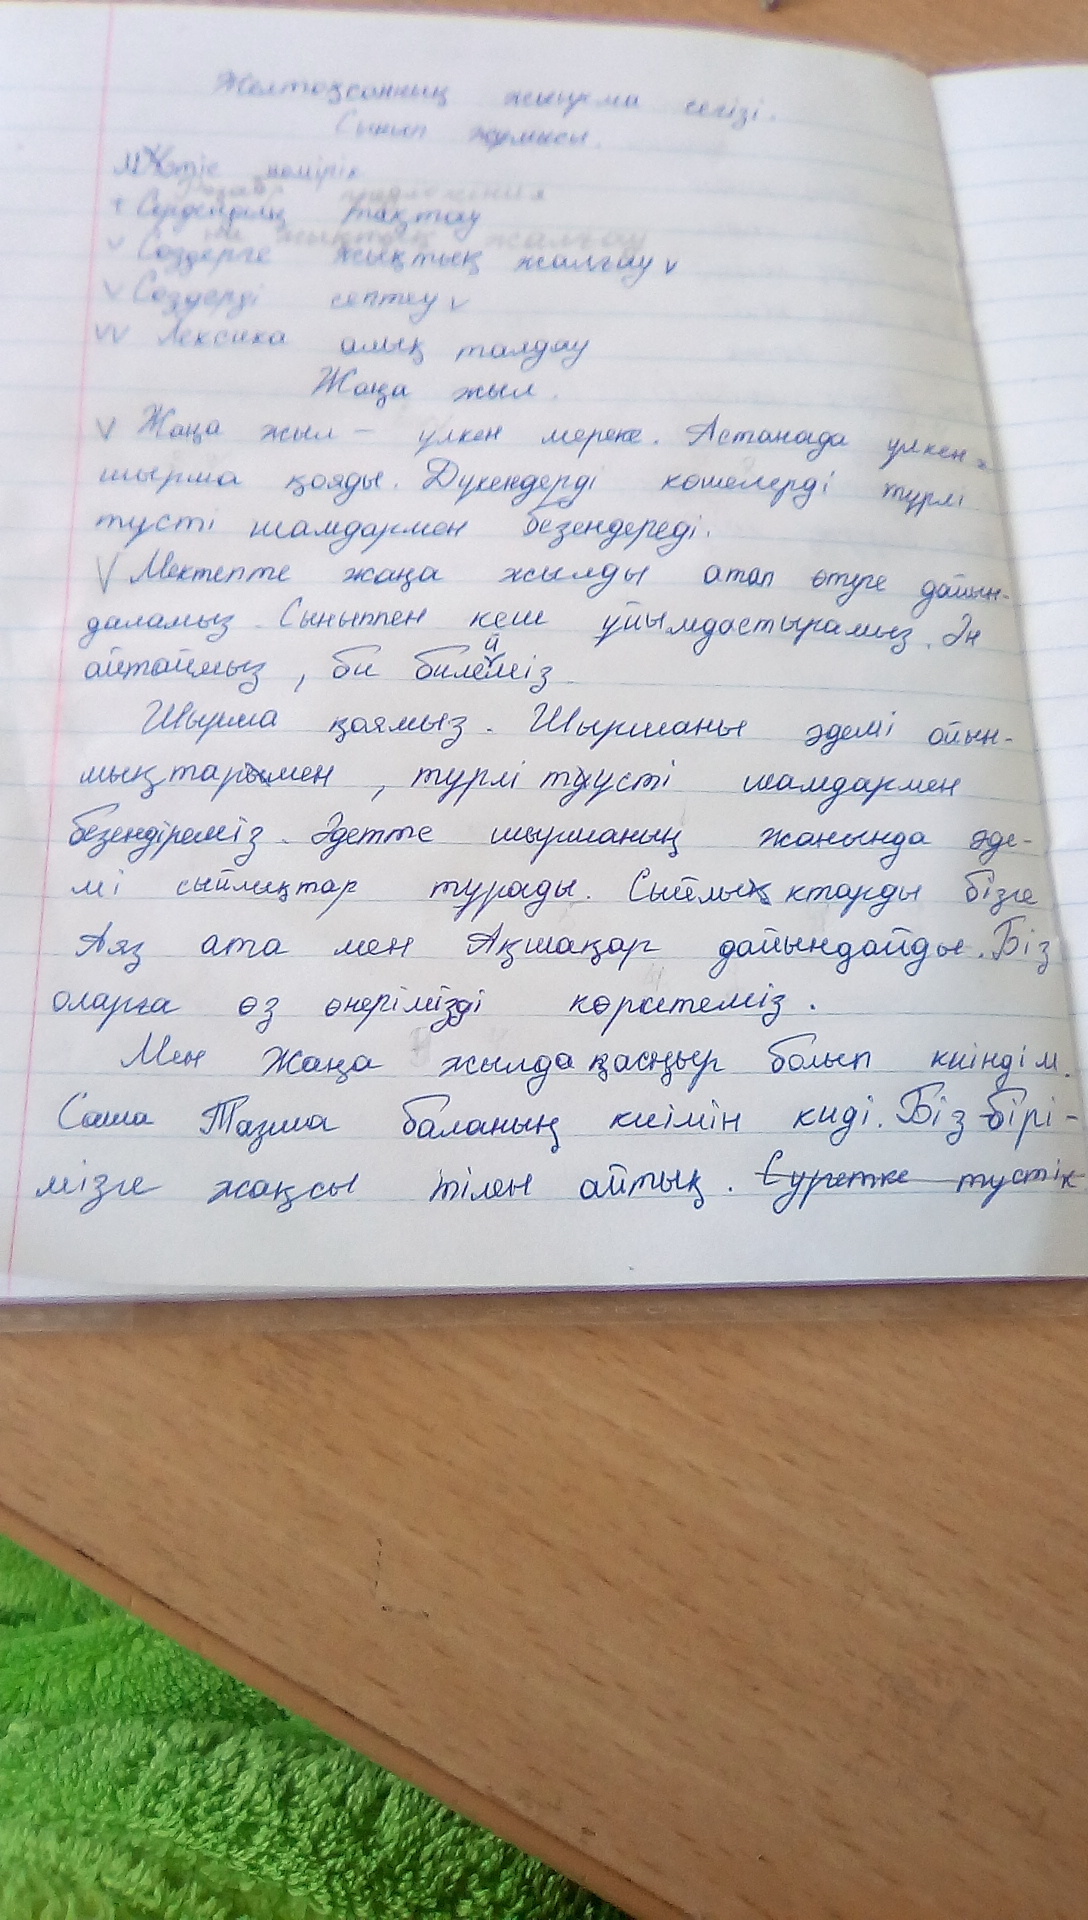 Желтоқсанның жиырма сегізі.
Сынып жұмысы.
Сөздерге жіктық жалғау v
v Сөздерді септеу v
vv Лексика алық талдау
Жаңа жыл.
V Жаңа жыл – үлкен мереке. Астанада үлкен
шырша қояды. Дүкендерді көшелерді түрлі
түсті шамдармен безендереді.
V Мектепте жаңа жылды атап өтуге дайын-
даламыз. Сыныппен кеш ұйымдастырамыз. Ән
айтаймыз, би билейміз
Шырша қоямыз. Шыршаны әдемі ойын-
мықтармен, түрлі түсті шамдармен
безендіреміз. Әдетте шыршаның жанында әде-
мі сыйлықтар тұрады. Сыйлықтарды бізге
Аяз ата мен Ақшақар дайындайды. Біз
оларға өз өнерімізді көрсетеміз.
Мен Жаңа жылда қасқыр болып киіндім.
Саша Тазша баланың киімін киді. Біз бірі-
мізге жақсы тілек айтық. Суретке түстік